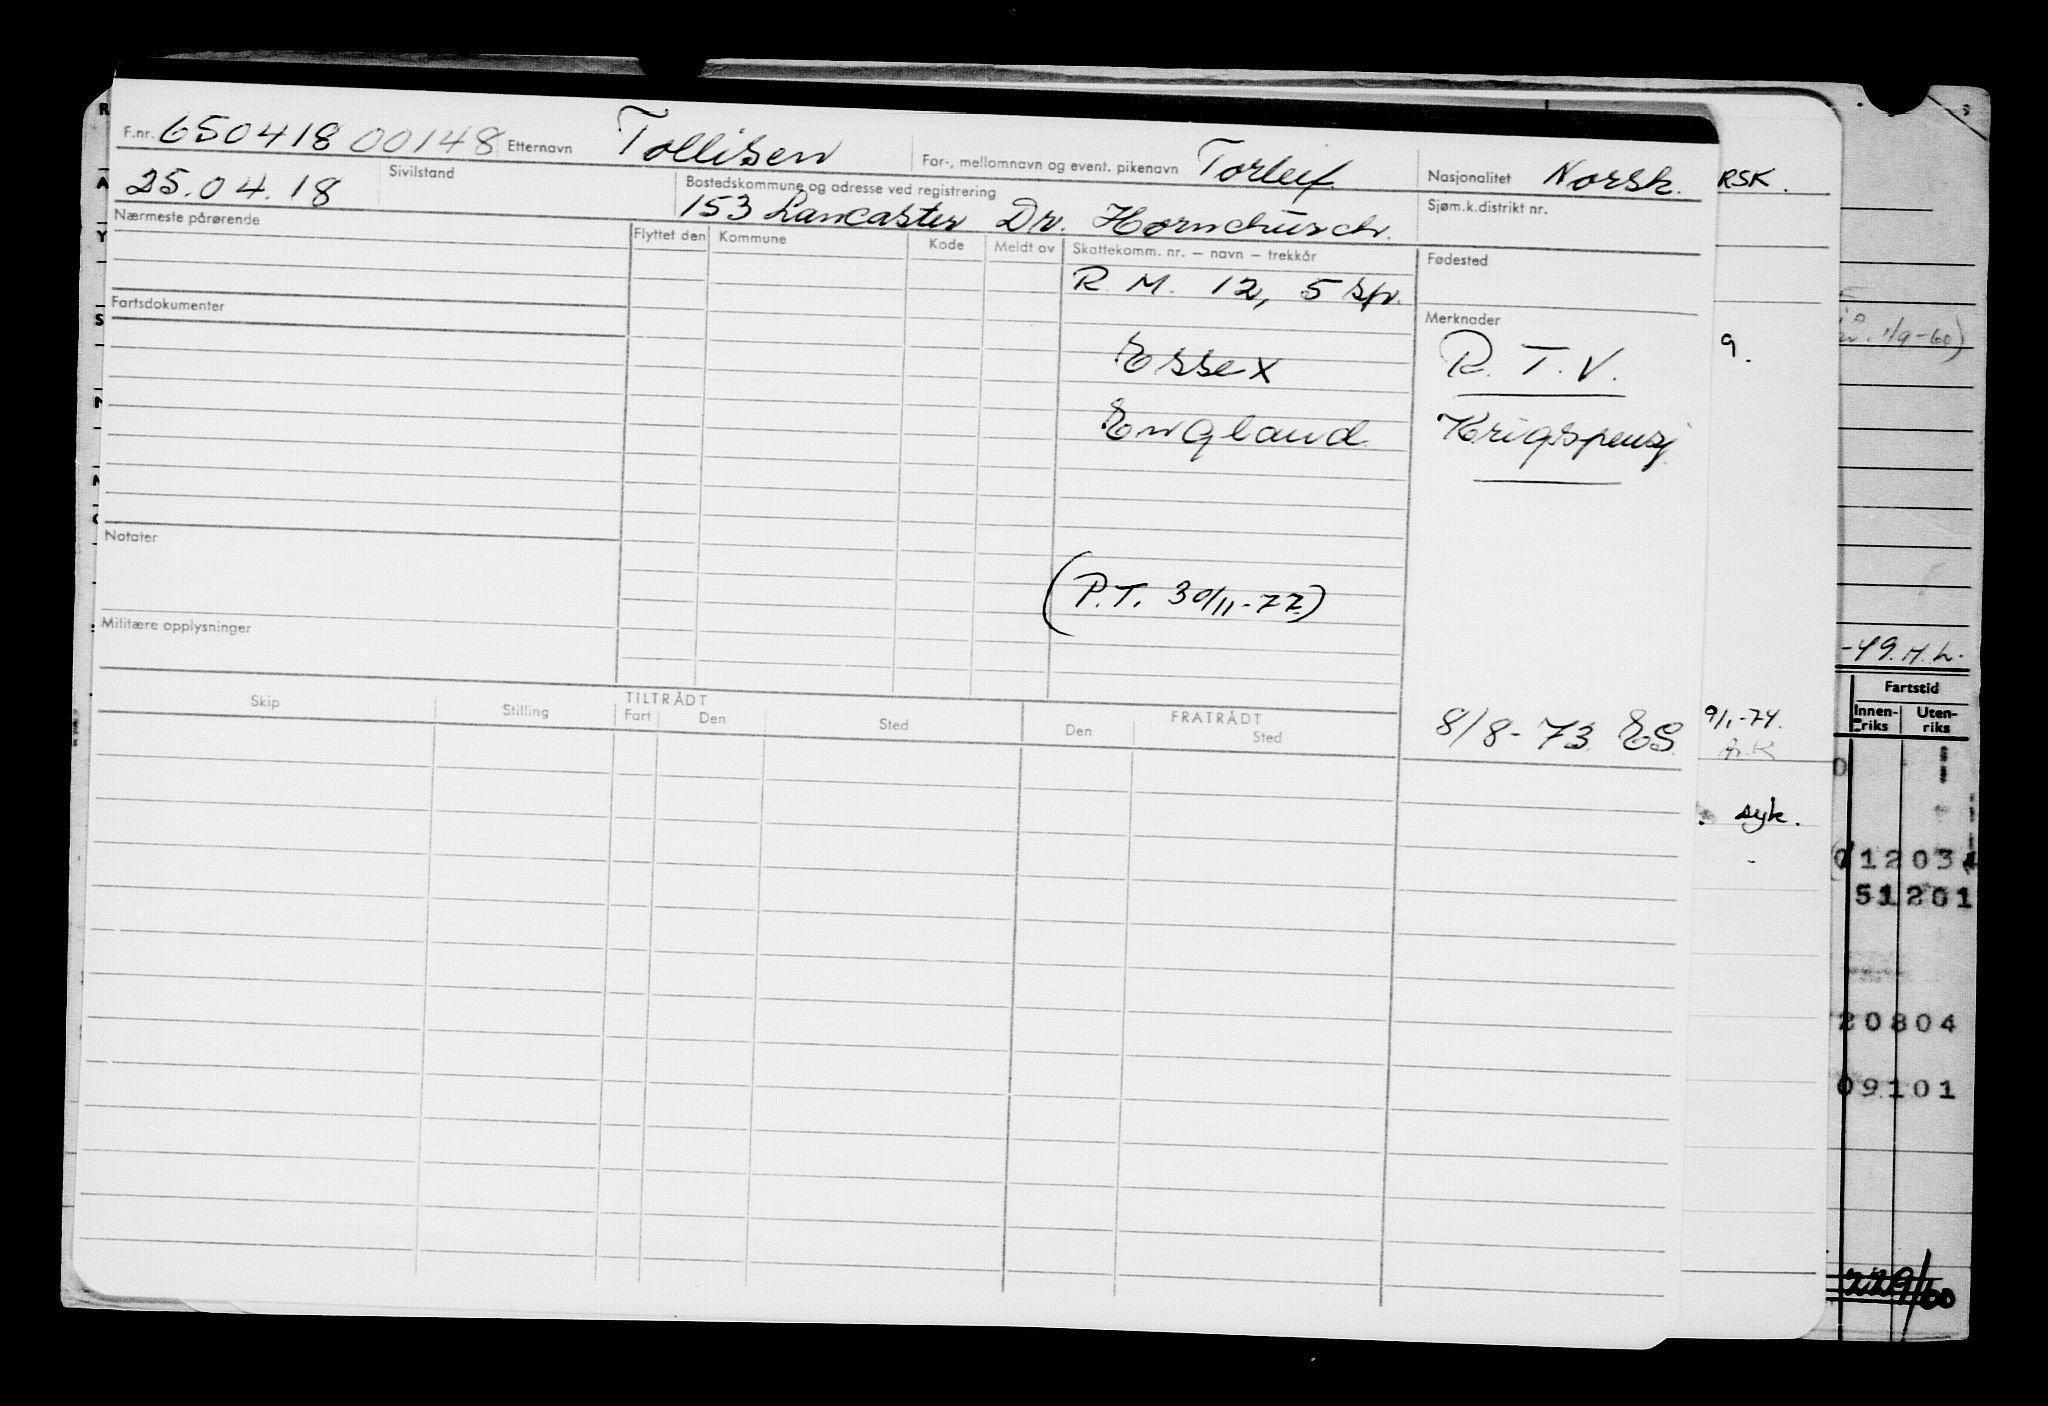 F.nr. 650418 00148 Etternavn Tollisen For-, mellomnavn og event. pikenavn Torleif Nasjonalitet Norsk. RSK.
25.04.18 Sivilstand Bostedskommune og adresse ved registrering Sjøm.k.distrikt nr.
153 Lancaster Dr. Hornchurch.
Nærmeste pårørende Flyttet den Kommune Kode Meldt av Skattekomm. nr. – navn – trekkår Fødested
R. M. 12, 5 Sfr.
Fartsdokumenter Merknader
Essex R. T. V. 9.
1/9-60)
England Krigspensj.
Notater
(P.T. 30/11-77)
Militære opplysninger
-49. H. L.
Skip Stilling TILTRÅDT Fart Den Sted FRATRÅDT Den Sted
8/8-73 ES. 9/1-74.
Fartstid
Innenriks Utenriks
syk.
1203
51201
20804
09101
229/60